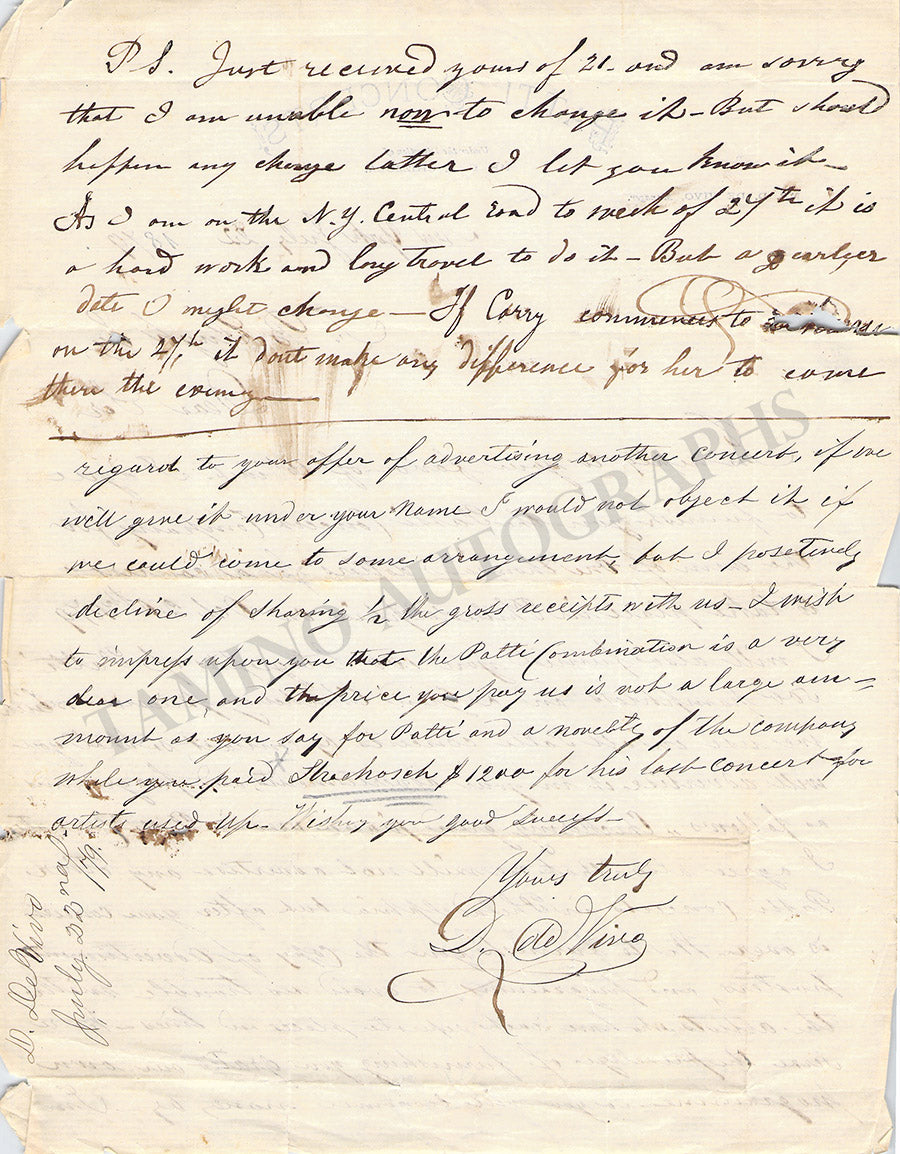 P S. Just received yours of 21 - and am sorry
that I am unable now to change it - But should
happen any change latter I let you know it -
As I am on the N.Y. Central Road to week of 27th it is
a hard work and long travel to do it - But a earlyer
date I might change - If Carry commences to
on the 27th it dont make any difference for her to come
there the evening
regard to your offer of advertising another concert, if we
will give it under your name I would not object it if
we could come to some arrangement, but I posetively
decline of sharing ½ the gross receipts with us - I wish
to impress upon you that the Patti Combination is a very
dear one and the price you pay us is not a large am-
mount as you say for Patti and a novelty of the company
while you paid Strachosch $1200 for his last concert for
artists used up - Wishing you good success -
Yours truly
D. de Vivo
D. De Vivo
July 22nd /79.
TAMINO AUTOGRAPHS